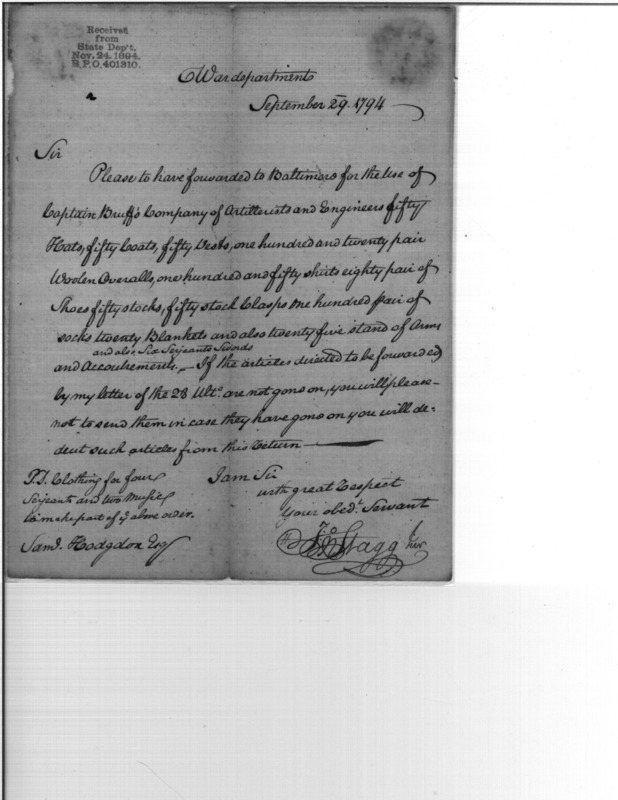 Received
from
State Dep't.
Nov. 24. 1894.
R.P.O. 401310.
War department
September 29. 1794
Sir
Please to have forwarded to Baltimore for the use of
Captain Bruff's Company of Artillerists and Engineers fifty
Hats, fifty Coats, fifty Vests, one hundred and twenty pair
Woolen Overalls, one hundred and fifty shirts eighty pair of
Shoes fifty stocks, fifty stock Clasps one hundred pair of
socks twenty Blankets and also twenty five stand of Arms
and also, Six Serjeants Swords
and Accoutrements,— If the articles directed to be forwarded
by my letter of the 23 Ulto. are not gone on, you will please
not to send them in case they have gone on you will de-
duct such articles from this Return
P.S. Clothing for four
Serjeants and two Music
to make part of ye above order.
I am Sir
with great respect
Your obedt. Servant
Jno Stagg Jr
Saml. Hodgdon Esqr